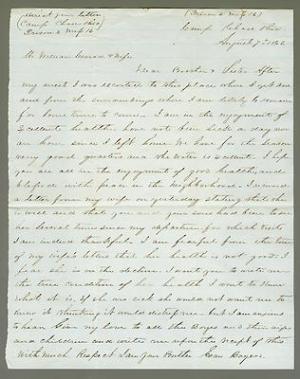 Direct your letters
(Camp Chase Ohio)
Prison & mess 16
(Prison 2 mess 16)
Camp Chase Ohio
August 7th 186
Mr William & Wife
Dear Brother & Sister After
my arrest I was escorted to this place where I yet am
and from the surroundings where I am likely to remain
for some time to come. I am in the enjoyment of
Excellent health, have not been sick a day nor
an hour since I left home. We have for the season
very good quarters and the water is excellent. I hope
you are all in the enjoyment of good health, and
blessed with peace in the neighborhood. I received
a letter from my wife on yesterday stating that she
is well and that you and your sons had been to see
her several times since my departure for which visits
I am indeed thankful. I am fearful from the tone
of my wife's letters that her health is not good. I
fear she is on the decline. I want you to write me
the true condition of her health I want to know
what it is. If she was sick she would not want me to
know it thinking it would distress me. but I am anxious
to hear Give my love to all the Boys and their wives
and children and write me upon the receipt of this
With much Respect I am your Brother